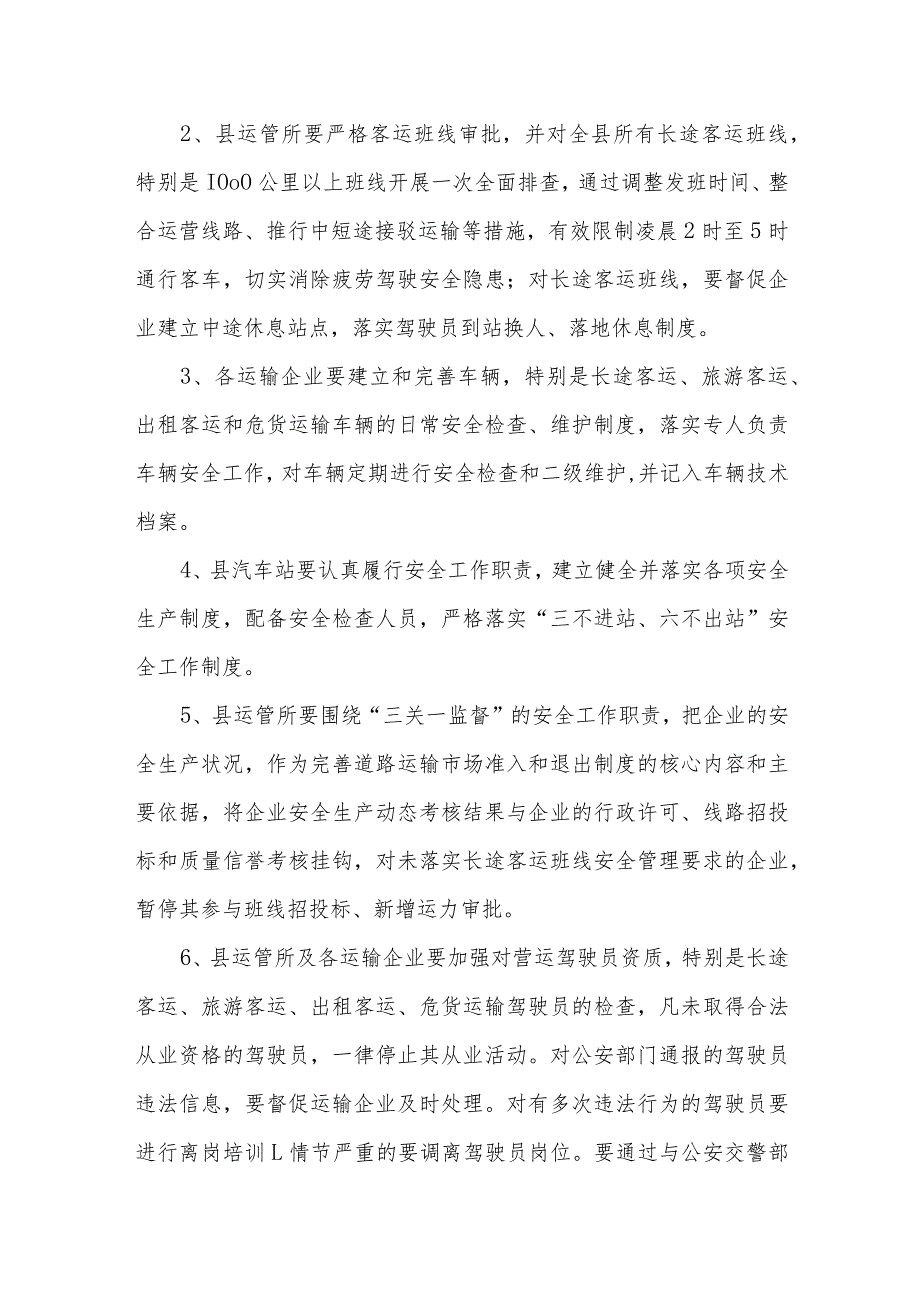 2、县运管所要严格客运班线审批，并对全县所有长途客运班线，
特别是IOoO公里以上班线开展一次全面排查，通过调整发班时间、整
合运营线路、推行中短途接驳运输等措施，有效限制凌晨2时至5时
通行客车，切实消除疲劳驾驶安全隐患；对长途客运班线，要督促企
业建立中途休息站点，落实驾驶员到站换人、落地休息制度。
3、各运输企业要建立和完善车辆，特别是长途客运、旅游客运、
出租客运和危货运输车辆的日常安全检查、维护制度，落实专人负责
车辆安全工作，对车辆定期进行安全检查和二级维护,并记入车辆技术
档案。
4、县汽车站要认真履行安全工作职责，建立健全并落实各项安全
生产制度，配备安全检查人员，严格落实“三不进站、六不出站”安
全工作制度。
5、县运管所要围绕“三关一监督”的安全工作职责，把企业的安
全生产状况，作为完善道路运输市场准入和退出制度的核心内容和主
要依据，将企业安全生产动态考核结果与企业的行政许可、线路招投
标和质量信誉考核挂钩，对未落实长途客运班线安全管理要求的企业，
暂停其参与班线招投标、新增运力审批。
6、县运管所及各运输企业要加强对营运驾驶员资质，特别是长途
客运、旅游客运、出租客运、危货运输驾驶员的检查，凡未取得合法
从业资格的驾驶员，一律停止其从业活动。对公安部门通报的驾驶员
违法信息，要督促运输企业及时处理。对有多次违法行为的驾驶员要
进行离岗培训L情节严重的要调离驾驶员岗位。要通过与公安交警部